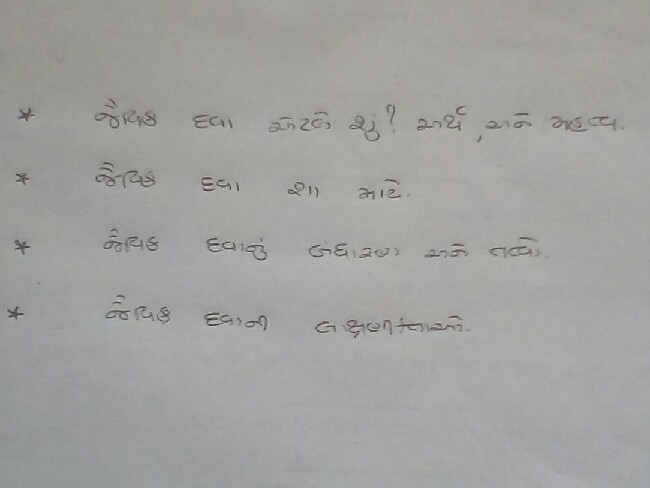 * જૈવિક દવા એટલે શું? અર્થ, અને મહત્વ.
* જૈવિક દવા શા માટે.
* જૈવિક દવાનું બંધારણ અને તત્વો.
* જૈવિક દવાની લાક્ષણીકતાઓ.